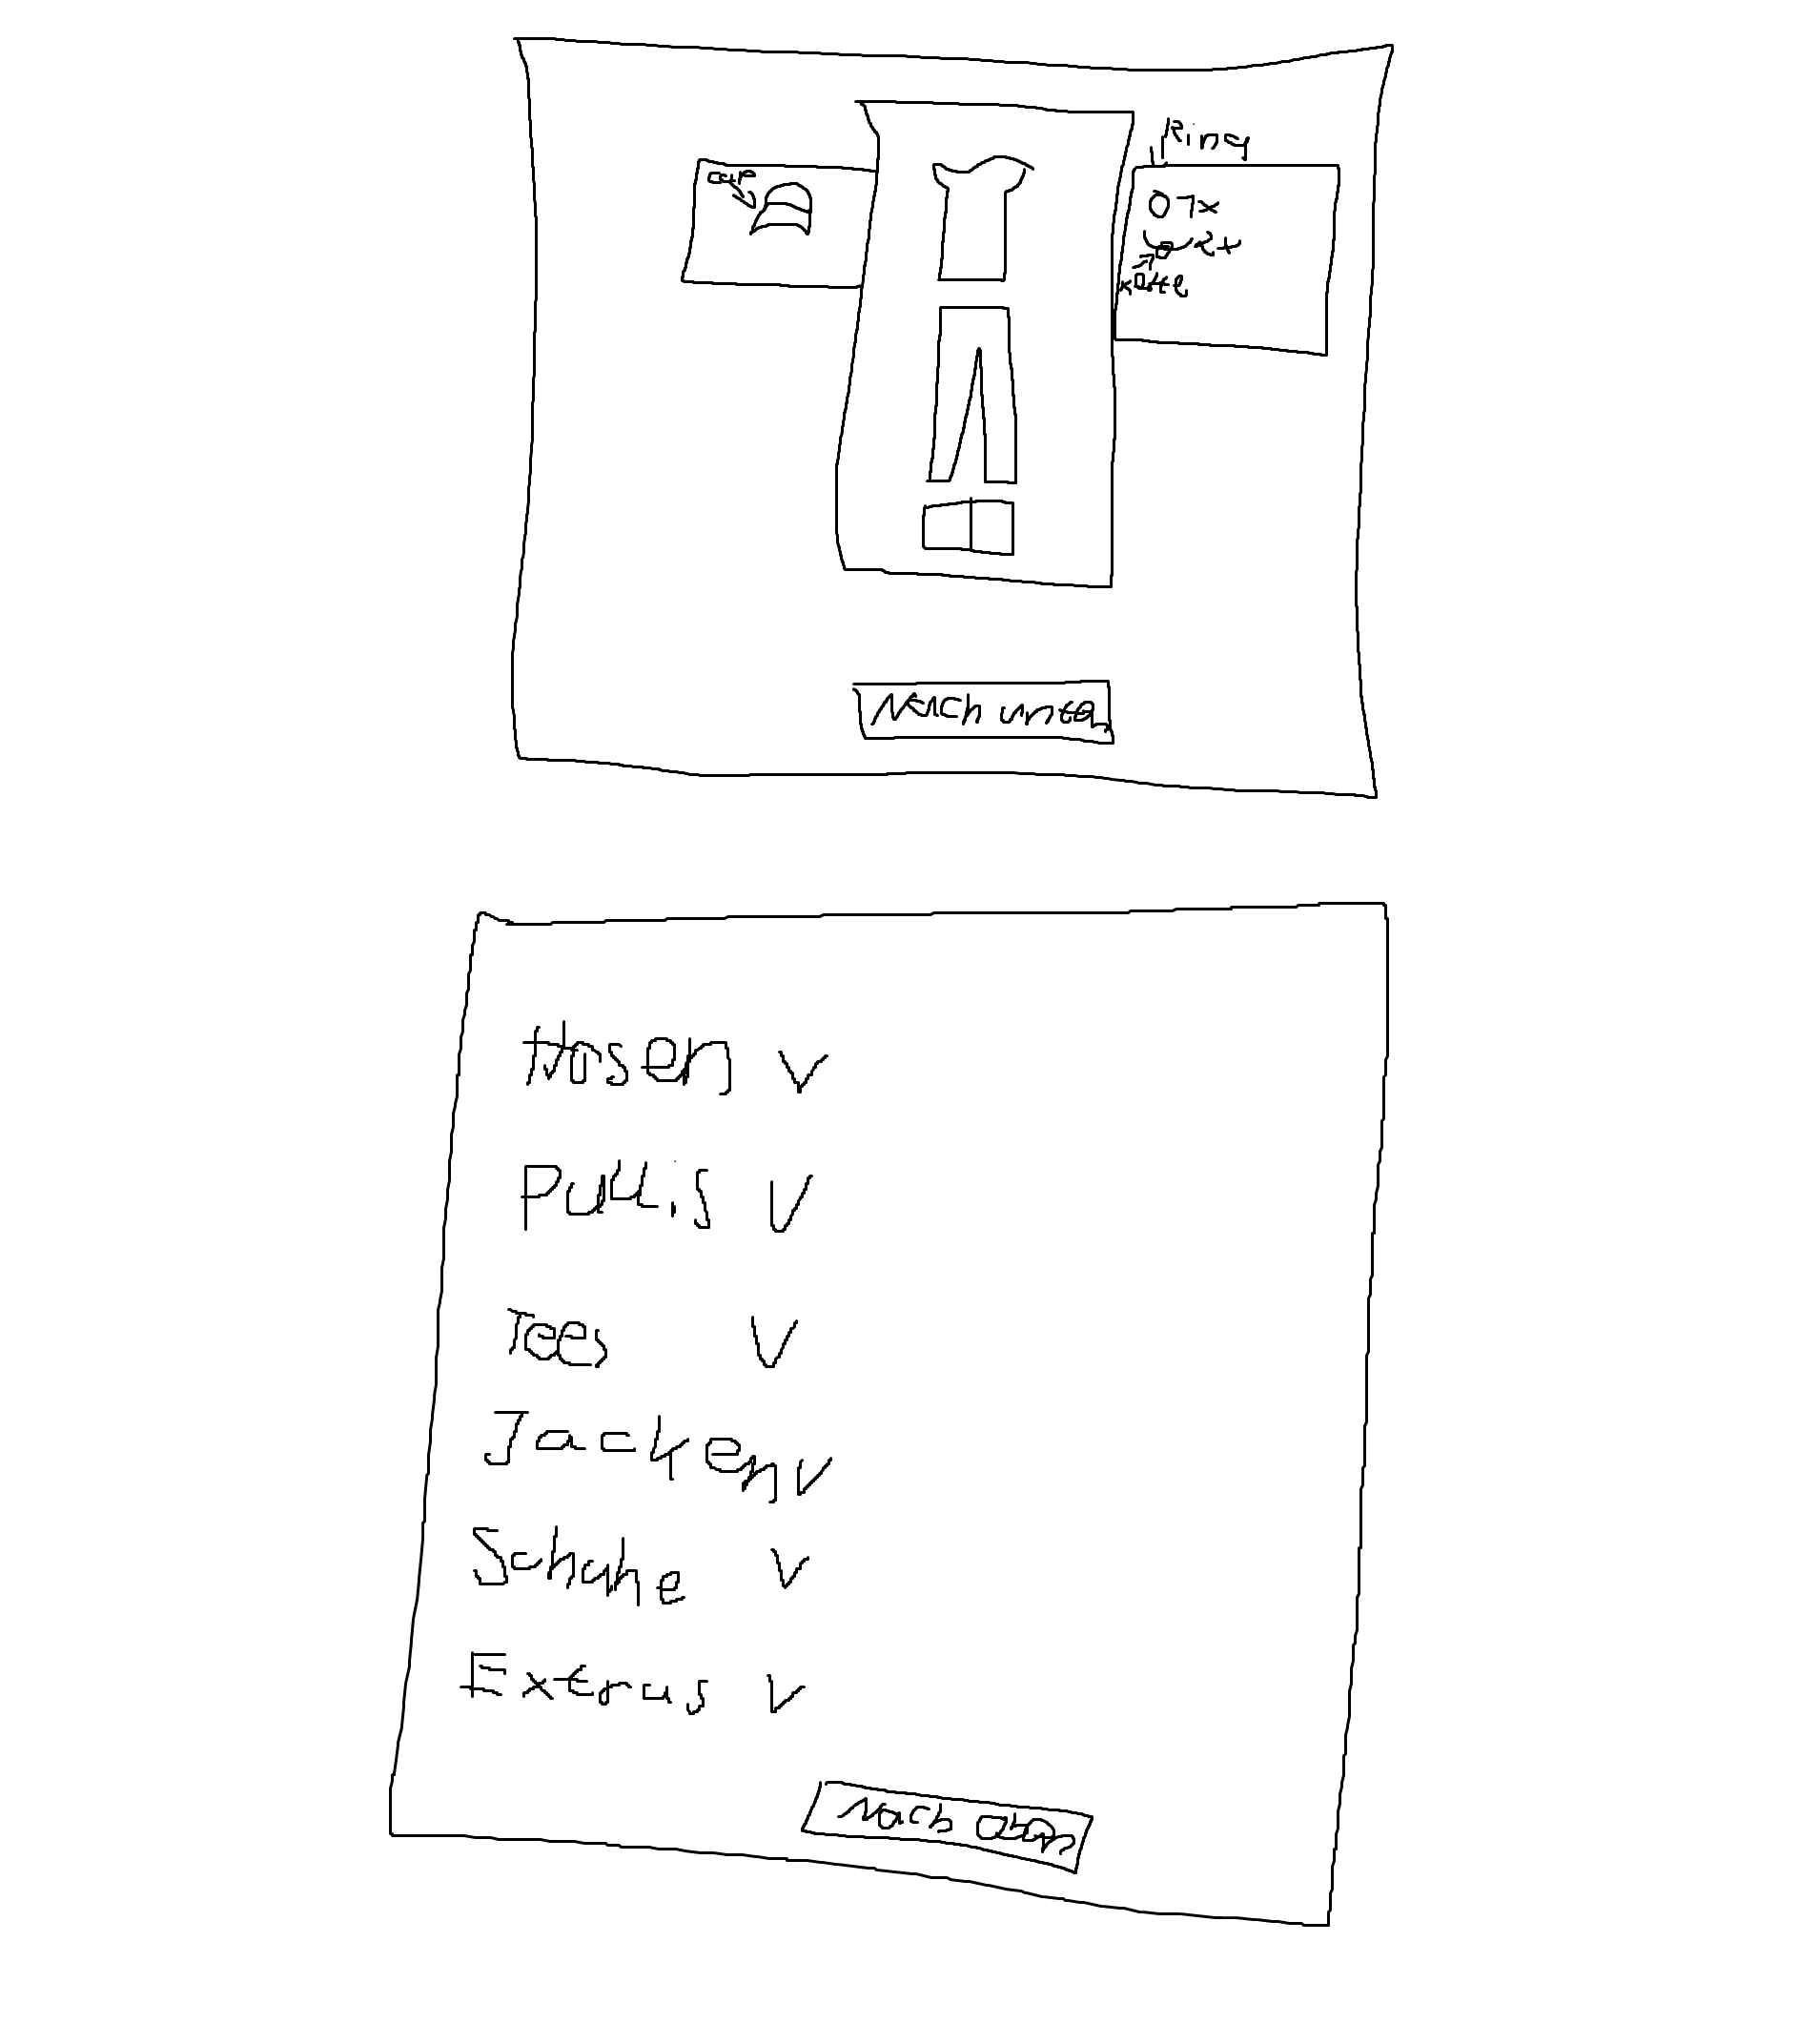 Ring
cap
O 1x
2x
Kette
Nach unten
Hosen v
Pullis v
Tees v
Jacken v
Schuhe v
Extras v
Nach oben